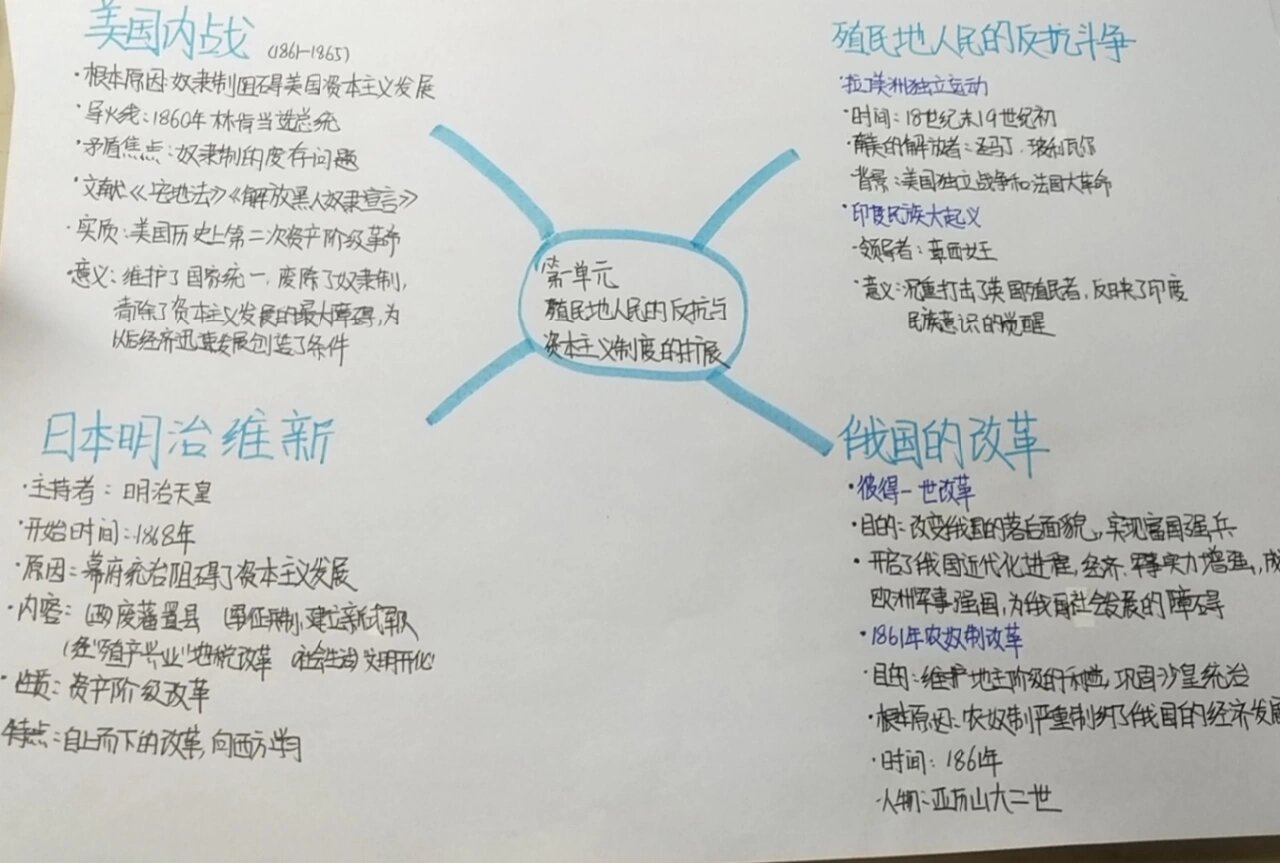 美国内战 (1861-1865)
·根本原因:奴隶制阻碍美国资本主义发展
·导火线:1860年林肯当选总统
·矛盾焦点:奴隶制的废存问题
·文献《宅地法》《解放黑人奴隶宣言》
·实质:美国历史上第二次资产阶级革命
·意义:维护了国家统一,废除了奴隶制,
清除了资本主义发展的最大障碍,为
以后经济迅速发展创造了条件
殖民地人民的反抗斗争
拉丁美洲独立运动
·时间:18世纪末19世纪初
·南美的解放者:圣马丁、玻利瓦尔
背景:美国独立战争和法国大革命
·印度民族大起义
·领导者:章西女王
·意义:沉重打击了英国殖民者,反映了印度
民族意识的觉醒
第一单元
殖民地人民的反抗与
资本主义制度的扩展
日本明治维新
·主持者:明治天皇
·开始时间:1868年
·原因:幕府统治阻碍了资本主义发展
·内容:(政)废藩置县 (军)征兵制,建立新式军队
(经)"殖产兴业"地税改革 (社会生活)文明开化
·性质:资产阶级改革
特点:自上而下的改革,向西方学习
俄国的改革
·彼得一世改革
·目的:改变俄国的落后面貌,实现富国强兵
·开启了俄国近代化进程,经济、军事实力增强,成
欧洲军事强国,为俄国社会发展的障碍
·1861年农奴制改革
·目的:维护地主阶级的利益,巩固沙皇统治
·根本原因:农奴制严重制约了俄国的经济发展
·时间:1861年
·人物:亚历山大二世